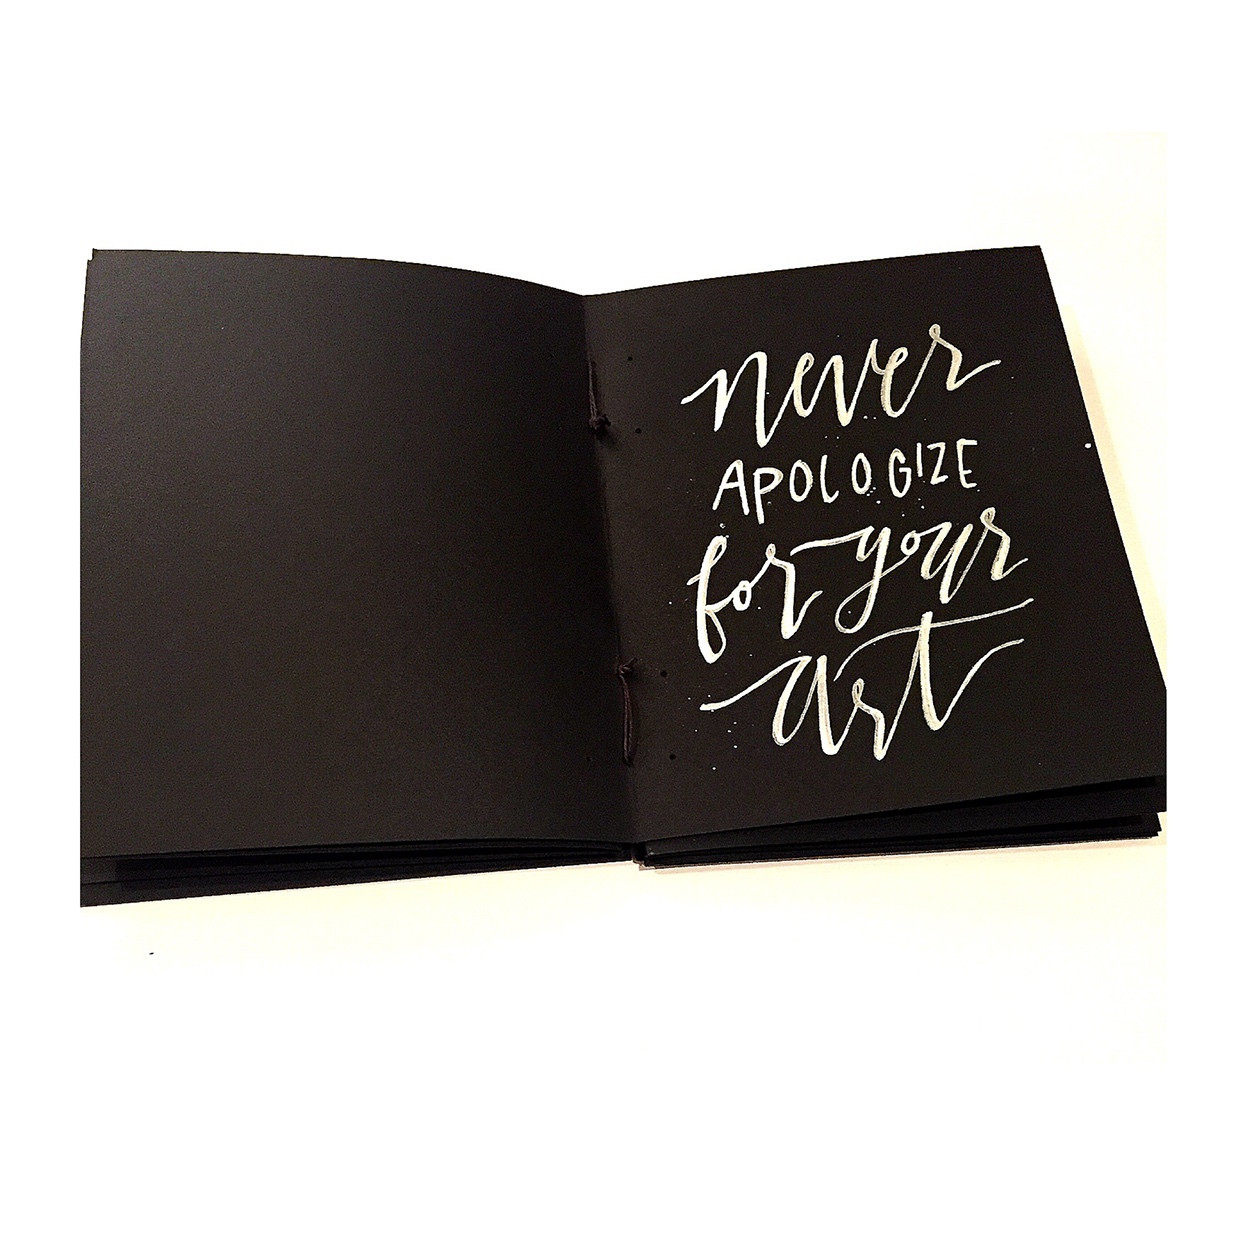 never
APOLOGIZE
for your
art